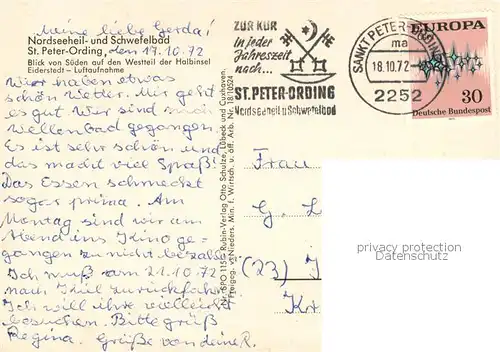 Meine liebe Gerda!
Nordseeheil- und Schwefelbad
St. Peter-Ording, den 17.10.72
Blick von Süden auf den Westteil der Halbinsel
Eiderstedt - Luftaufnahme
Wir haben etwas
schön Wetter. Mir geht
es gut. Wir sind
Wellenbad gegangen
Es ist sehr schön und
das macht viel Spaß.
Das Essen schmeckt
sogar prima. Am
Montag sind wir am
Abend ins Kino ge-
gangen zu nicht bezahl
Ich muß am 21.10.72
nach Kiel zurückfahr
Ich will ihre vielleicht
besuchen. Bitte grüß
Regina. Grüße von deine R.
Nr. SPO 1155 Rubin-Verlag Otto Schulze, Lübeck und Cuxhaven
Freigeg. v. Nieders. Min. f. Wirtsch. u. öff. Arb. Nr. 18/10524
ZUR KUR
in jeder
Jahreszeit
nach...
ST. PETER-ORDING
Nordseeheil u Schwefelbad
SANKT PETER-ORDING
ma
18.10.72
2252
EUROPA
30
Deutsche Bundespost
Frau
G. L
(23)
privacy protection
Datenschutz